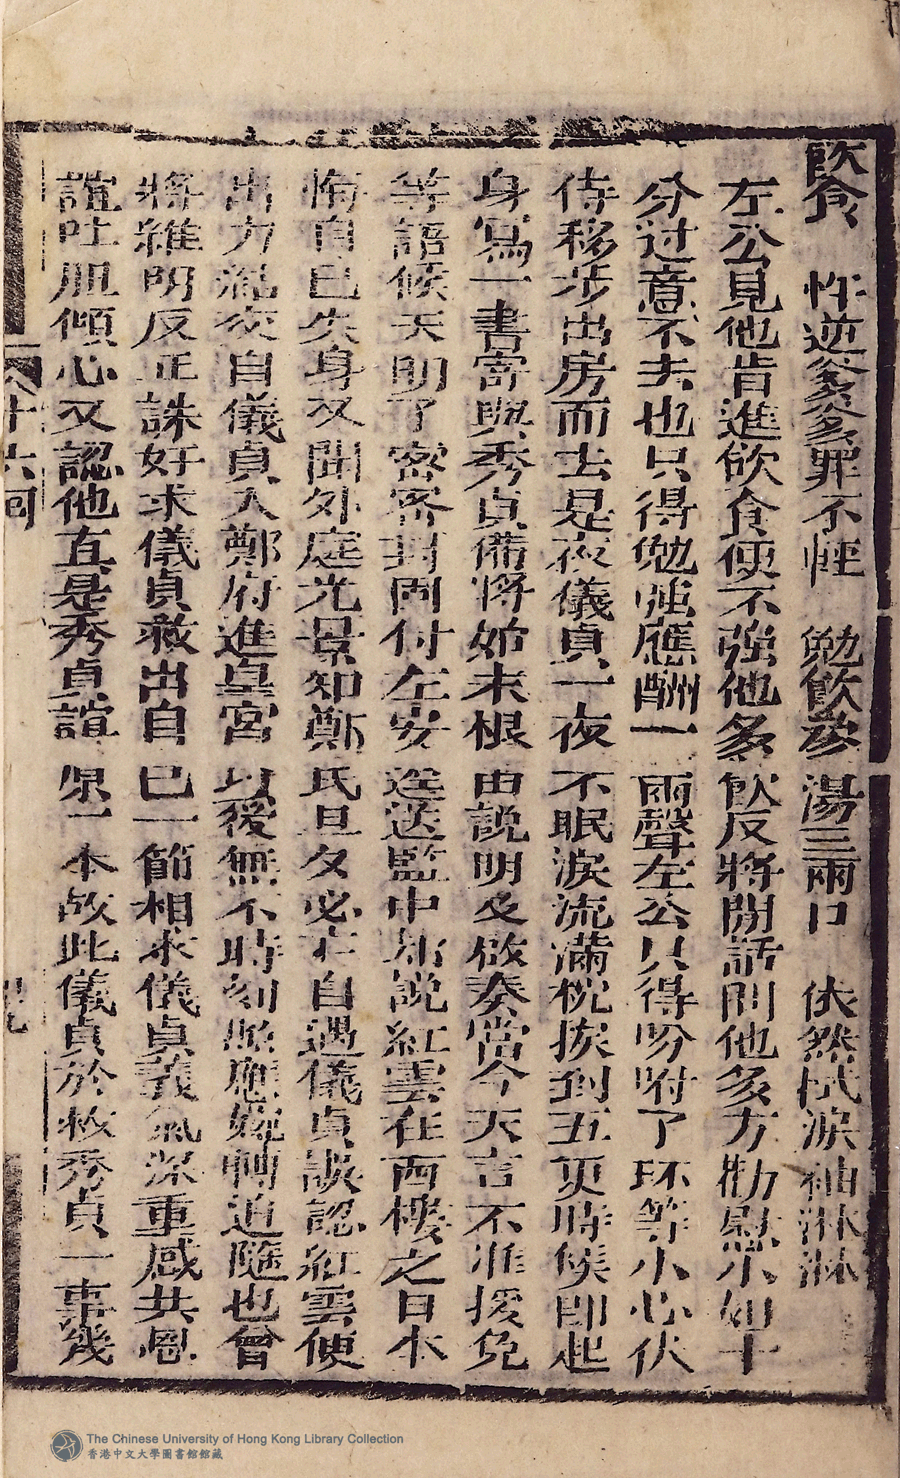 飲食　忤逆爹爹罪不輕　勉飲參湯三兩口　依然拭淚袖淋淋
左公見他肯進飲食便不強他多飲反將閒話問他多方勸慰小如十
分过意不去也只得勉強應酬一兩聲左公只得吩咐了环等小心伏
侍移步出房而去是夜儀貞一夜不眠淚流滿枕挨到五更時候即起
身寫一書寄與秀貞備將始末根由說明及啟奏當今天言不准援免
等語候天明了密密封固付左安送監中　說紅雲在西樓之日本
悔自已失身又聞外庭光景知鄭氏旦夕必亡自遇儀貞談認紅雲便
出力　交自儀貞入鄭府進皇宮以後無不時刻照應婉轉追隨也曾
將維明反正誅奸求儀貞救出自已一節相求儀貞義氣深重感其恩
誼吐胆傾心又認他直是秀貞誼原一本故此儀貞於救秀貞一事幾
十六回
The Chinese University of Hong Kong Library Collection
香港中文大學圖書館館藏